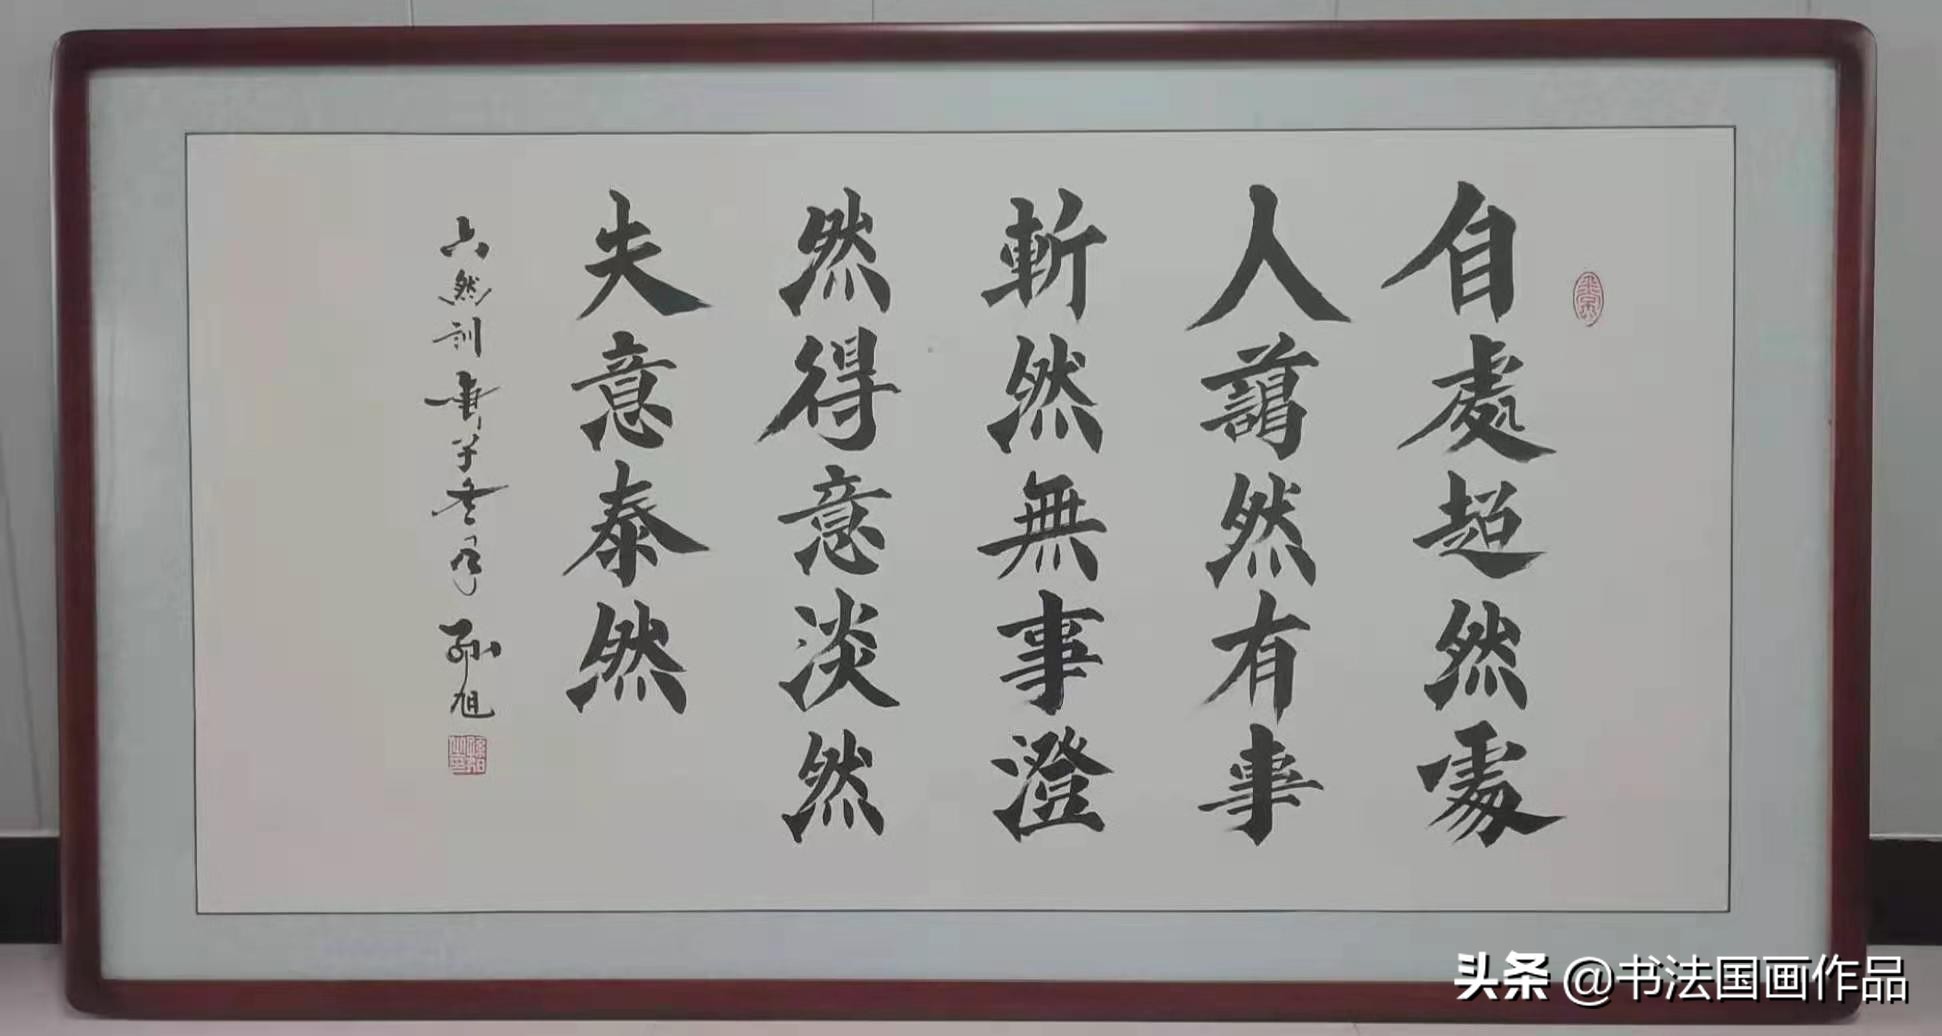 自處超然處
人藹然有事
斬然無事澄
然得意淡然
失意泰然
六然訓 孫旭
头条 @书法国画作品